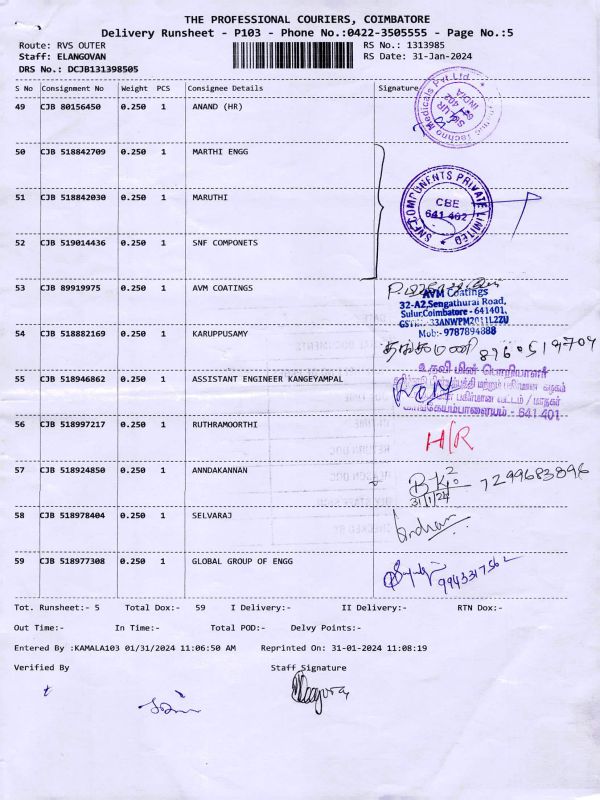 THE PROFESSIONAL COURIERS, COIMBATORE
Delivery Runsheet - P103 - Phone No.:0422-3505555 - Page No.:5
Route: RVS OUTER
RS No.: 1313985
Staff: ELANGOVAN
RS Date: 31-Jan-2024
DRS No.: DCJB131398505
S No Consignment No Weight PCS Consignee Details Signature
49 CJB 80156450 0.250 1 ANAND (HR)
Techno Medicals Pvt.Ltd.
SULUR
641 402
INDIA
50 CJB 518842709 0.250 1 MARTHI ENGG
51 CJB 518842030 0.250 1 MARUTHI
SNF COMPONENTS PRIVATE LIMITED
CBE
641 402
52 CJB 519014436 0.250 1 SNF COMPONETS
53 CJB 89919975 0.250 1 AVM COATINGS
AVM Coatings
32-A2,Sengathurai Road,
Sulur,Coimbatore - 641401,
Mob:- 9787894888
54 CJB 518882169 0.250 1 KARUPPUSAMY
தங்கமணி 8960519704
55 CJB 518946862 0.250 1 ASSISTANT ENGINEER KANGEYAMPAL
உதவி மின் பொறியாளர்
காங்கேயம்பாளையம் - 641 401
56 CJB 518997217 0.250 1 RUTHRAMOORTHI
H/R
57 CJB 518924850 0.250 1 ANNDAKANNAN
7299683896
31/1/24
58 CJB 518978404 0.250 1 SELVARAJ
59 CJB 518977308 0.250 1 GLOBAL GROUP OF ENGG
Tot. Runsheet:- 5 Total Dox:- 59 I Delivery:- II Delivery:- RTN Dox:-
Out Time:- In Time:- Total POD:- Delvy Points:-
Entered By :KAMALA103 01/31/2024 11:06:50 AM Reprinted On: 31-01-2024 11:08:19
Verified By Staff Signature